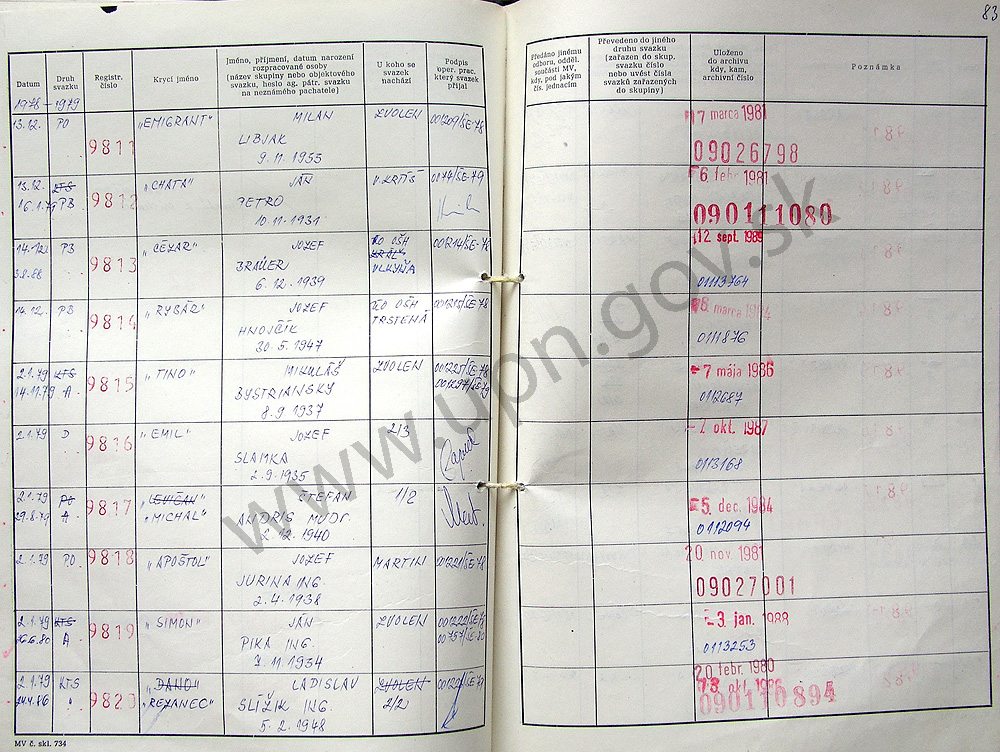 83
Datum
Druh svazku
Registr. číslo
Krycí jméno
Jméno, příjmení, datum narození
rozpracované osoby
(název skupiny nebo objektového
svazku, heslo ag. pátr. svazku
na neznámého pachatele)
U koho se
svazek
nachází
Podpis
oper. prac.
který svazek
přijal
Předáno jinému
odboru, odděl.
součásti MV,
kdy, pod jakým
čís. jednacím
Převedeno do jiného
druhu svazku
(zařazen do skup.
svazku číslo
nebo uvést čísla
svazků zařazených
do skupiny)
Uloženo
do archivu
kdy, kam,
archivní číslo
Poznámka
1978-1979
13.12. PO 9811 "EMIGRANT" MILAN ZVOLEN 001209/ŠE-78 17 marca 1981
LIBJAK
9.11.1955 09026798
13.12. KTS 9812 "CHATA" JÁN V.KRTÍŠ 0074/ŠE-79 6. febr 1981
16.1.79 PB PETRO
10.11.1931 090111080
14.12. PB 9813 "CÉZAR" JOZEF OŠH 001214/ŠE-78 12. sept. 1989
3.8.88 BRAUER
6.12.1939 01113764
14.12. PB 9814 "RYBÁR" JOZEF OŠH 001215/ŠE-78 marca
HNOJČÍK TRSTENÁ
30.5.1947 0111876
2.1.79 KTS 9815 "TINO" MIKULÁŠ ZVOLEN 001225/ŠE-78 7 mája 1986
14.11.79 A BYSTRIANSKY 001297/ŠE-79
8.9.1937 0112687
2.1.79 D 9816 "EMIL" JOZEF 2/3 okt. 1987
SLAMKA
2.9.1935 0113168
2.1.79 PO 9817 "LEVIČAN" ŠTEFAN 1/2 5. dec. 1984
29.8.79 A "MICHAL" ANDRIS MUDr.
12.1940 0112094
2.1.79 PO 9818 "APOŠTOL" JOZEF MARTIN 001221/ŠE-78 20 nov. 1981
JURINA ING.
2.4.1938 09027001
2.1.79 KTS 9819 "SIMON" JÁN ZVOLEN 3. jan. 1988
26.6.80 A PIKA ING. 00757/ŠE-80
11.1934 0113253
2.1.79 KTS 9820 "DANO" LADISLAV ZVOLEN 20 febr. 1980
"REZANEC" SLÍŽIK ING. 2/2 okt.
5.2.1948 090110894
MV č. skl. 734
www.upn.gov.sk